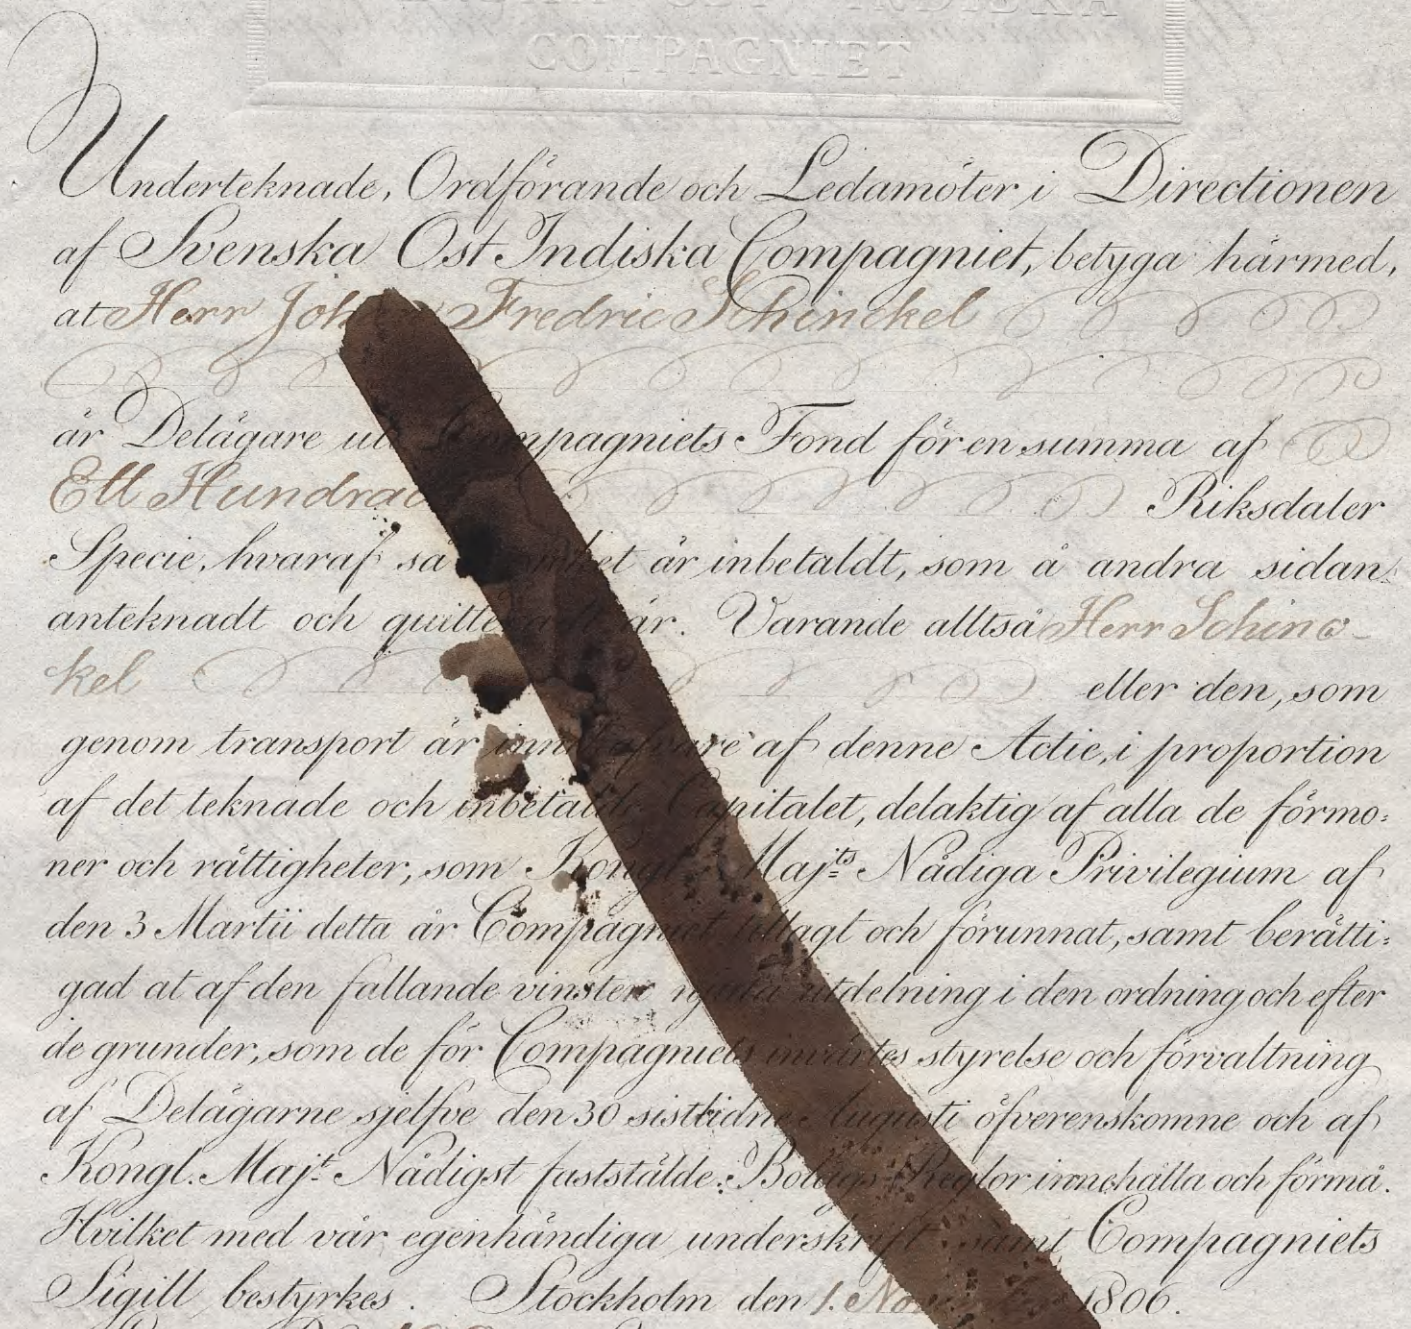 OST INDISKA
COMPAGNIET
Underteknade, Ordförande och Ledamöter i Directionen
af Svenska Ost Indiska Compagniet, betyga härmed,
at Herr Joh Fredric Schinckel
är Delägare uti Compagniets Fond för en summa af
Ett Hundrade Riksdaler
Specie, hvaraf så mycket är inbetaldt, som å andra sidan
anteknadt och quitteradt är. Varande alltså Herr Schinc-
kel eller den, som
genom transport är innehafvare af denne Actie, i proportion
af det teknade och inbetalde Capitalet, delaktig af alla de förmo:
ner och rättigheter, som Kongl. Maj:ts Nådiga Privilegium af
den 3 Martii detta år Compagniet tillagt och förunnat, samt berätti:
gad at af den fallande vinsten njuta utdelning i den ordning och efter
de grunder, som de för Compagniets invärtes styrelse och förvaltning
af Delägarne sjelfve den 30 sistlidne Augusti öfverenskomne och af
Kongl. Maj:t Nådigst faststälde Bolags Reglor innehålla och förmå.
Hvilket med vår egenhändiga underskrift samt Compagniets
Sigill bestyrkes. Stockholm den 1. November 1806.